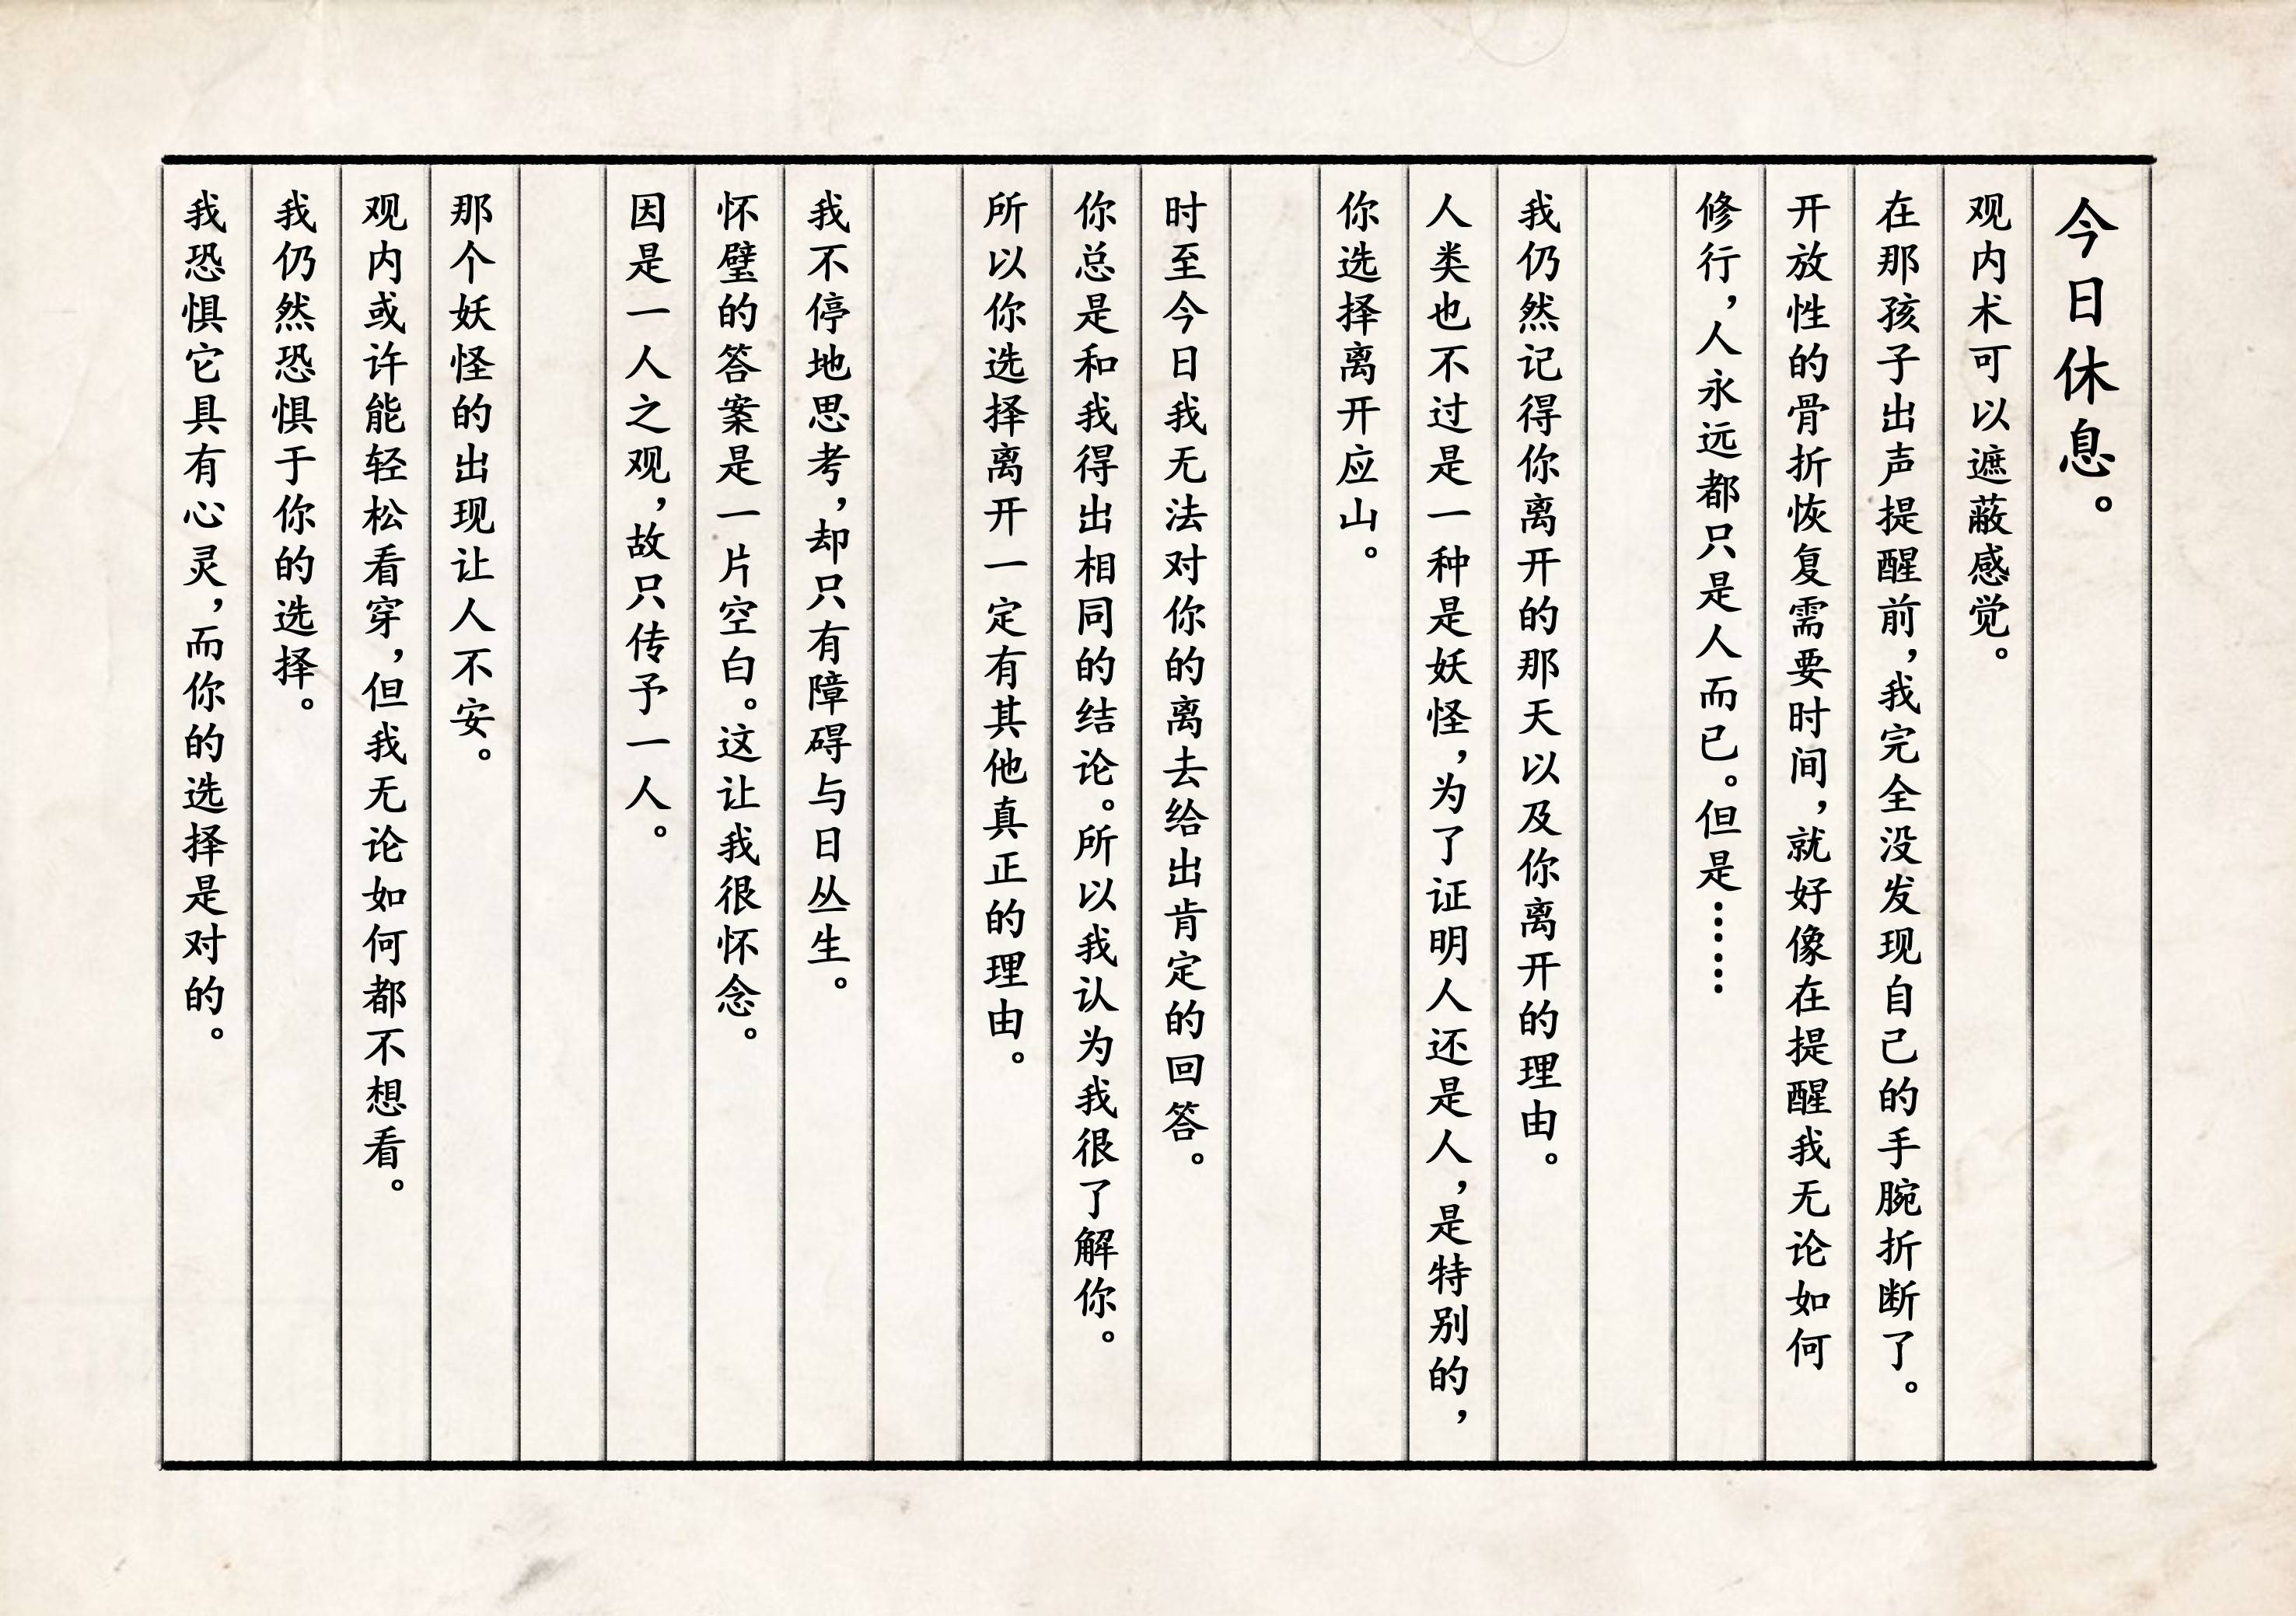 今日休息。
观内术可以遮蔽感觉。
在那孩子出声提醒前，我完全没发现自己的手腕折断了。
开放性的骨折恢复需要时间，就好像在提醒我无论如何
修行，人永远都只是人而已。但是……
我仍然记得你离开的那天以及你离开的理由。
人类也不过是一种是妖怪，为了证明人还是人，是特别的，
你选择离开应山。
时至今日我无法对你的离去给出肯定的回答。
你总是和我得出相同的结论。所以我认为我很了解你。
所以你选择离开一定有其他真正的理由。
我不停地思考，却只有障碍与日丛生。
怀璧的答案是一片空白。这让我很怀念。
因是一人之观，故只传予一人。
那个妖怪的出现让人不安。
观内或许能轻松看穿，但我无论如何都不想看。
我仍然恐惧于你的选择。
我恐惧它具有心灵，而你的选择是对的。